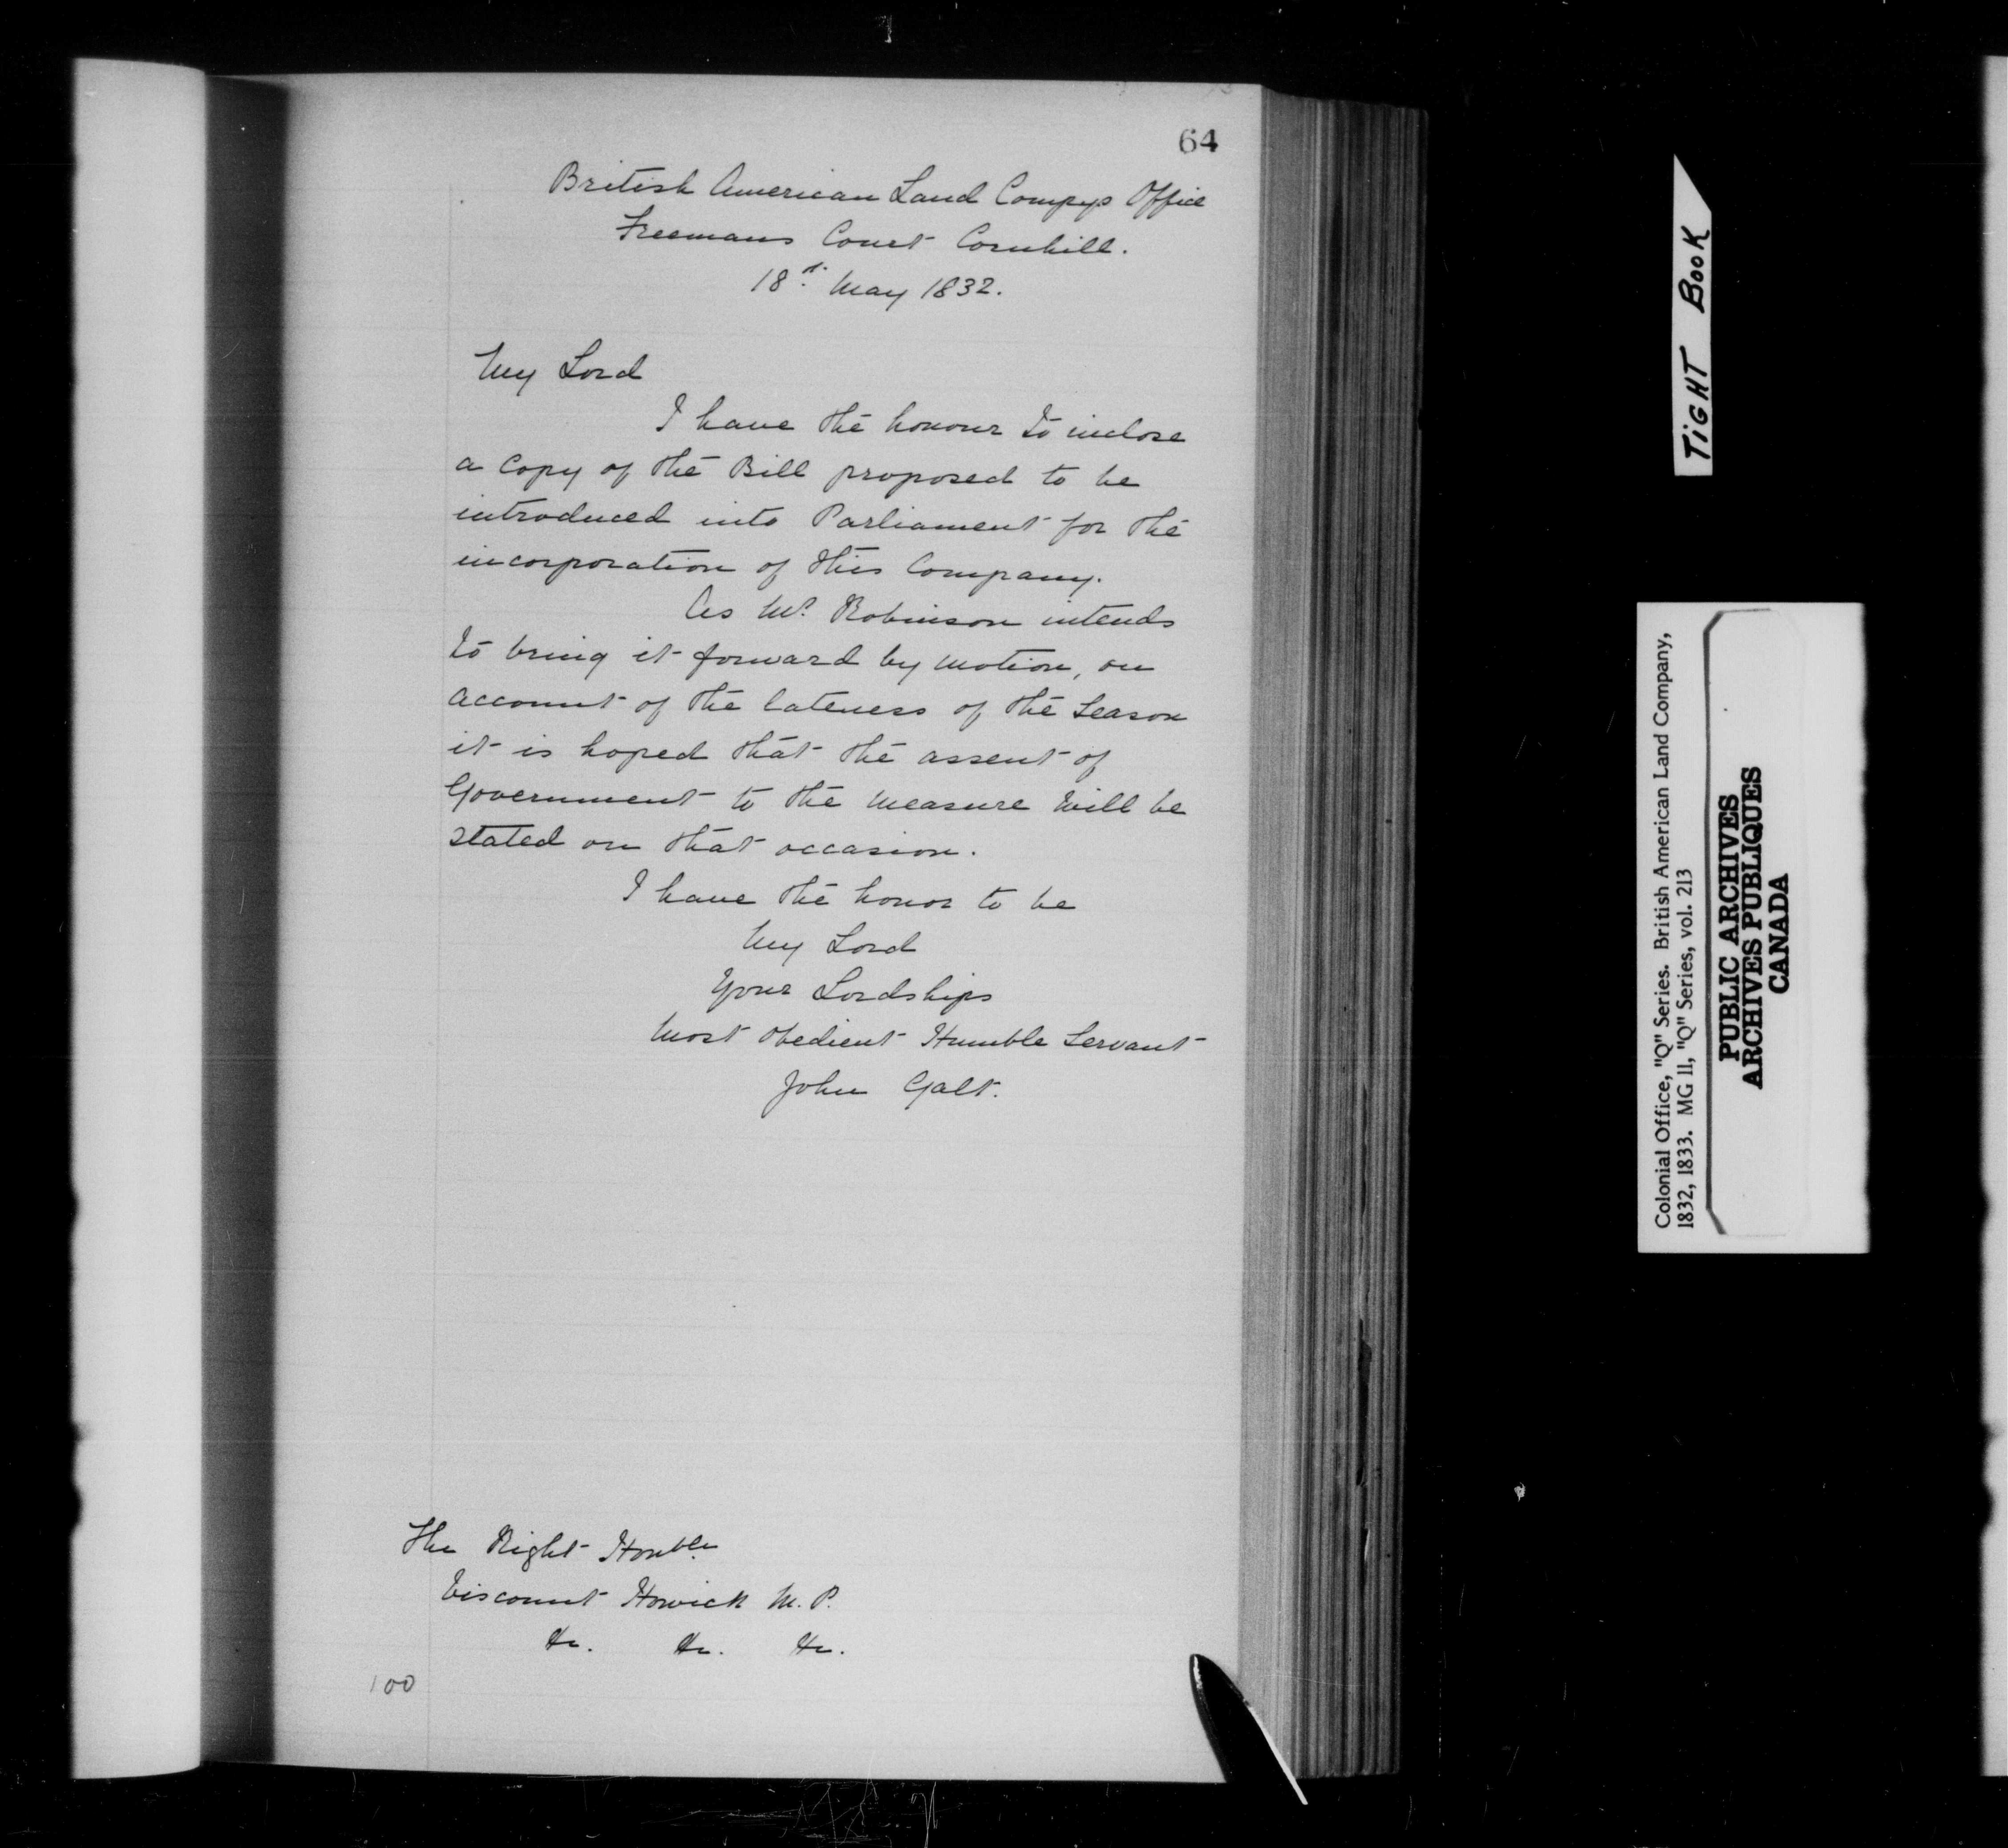 64
British American Land Compys Office
Freemans Court Cornhill.
18th May 1832.
My Lord
I have the honour to inclose
a Copy of the Bill proposed to be
introduced into Parliament for the
incorporation of this Company.
As Mr. Robinson intends
to bring it forward by motion, on
account of the lateness of the Season
it is hoped that the assent of
Government to the measure will be
stated on that occasion.
I have the honor to be
My Lord
Your Lordships
Most Obedient Humble Servant
John Galt.
The Right Honble.
Viscount Howick M.P.
&c. &c. &c.
100
TIGHT BOOK
Colonial Office, "Q" Series. British American Land Company,
1832, 1833. MG 11, "Q" Series, vol. 213
PUBLIC ARCHIVES
ARCHIVES PUBLIQUES
CANADA